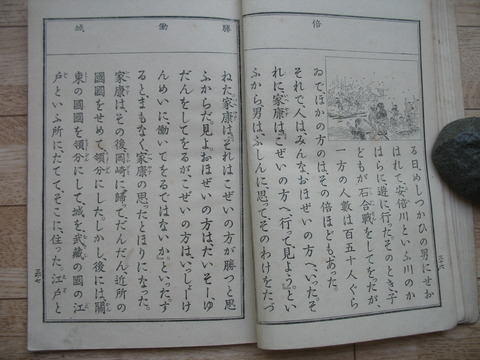 倍
る日、めしつかひの男にせお
はれて、安倍川といふ川のか
はらに遊に行た。そのとき、子
どもが石合戰をしてをつたが、
一方の人數は百五十人ぐら
ゐで、ほかの方のはその倍ほどもあった。
それで、人はみんな、おほぜいの方へ、いった。そ
れに、家康は「こぜいの方へ、行って見よう。」とい
ふから、男は、ふしんに思って、そのわけをたづ
三十六
勝 働 城
ねた。家康は「それはこぜいの方が勝つと思
ふからだ。見よ。おほぜいの方は、たいそーゆ
だんをしてをるが、こぜいの方は、いっしょーけ
んめいに働いてをるではないか。」といった。す
ると、まもなく、家康の思ったとほりになった。
家康は、その後、岡崎に歸て、だんだん、近所の
國國をせめて、領分にした。しかし、後には、關
東の國國を領分にして、城を武藏の國の江
戸といふ所に、たてて、そこに住った。江戸と
三十七